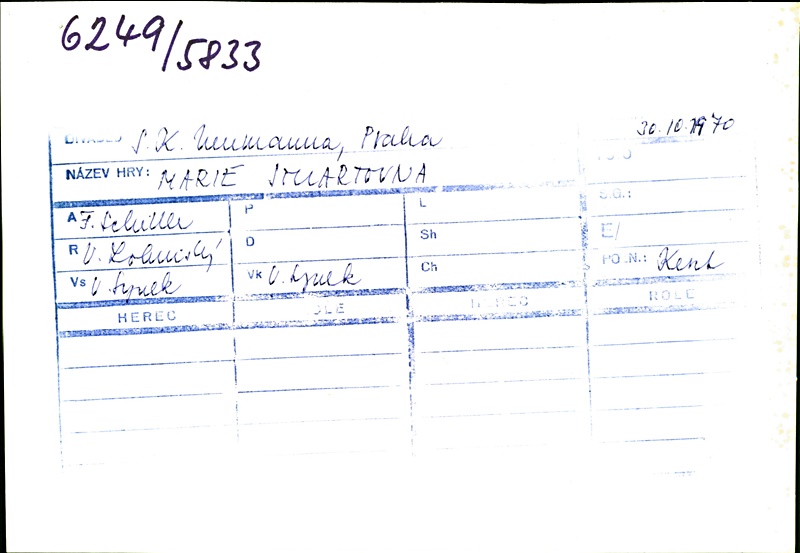 6249/5833
DIVADLO S. K. Neumanna, Praha 30.10.1970
NÁZEV HRY: MARIE STUARTOVNA
A F. Schiller P L S.G.:
R V. Lohniský D Sh E/
Vs V. Synek Vk V. Synek Ch PO.N.: Kent
HEREC ROLE HEREC ROLE